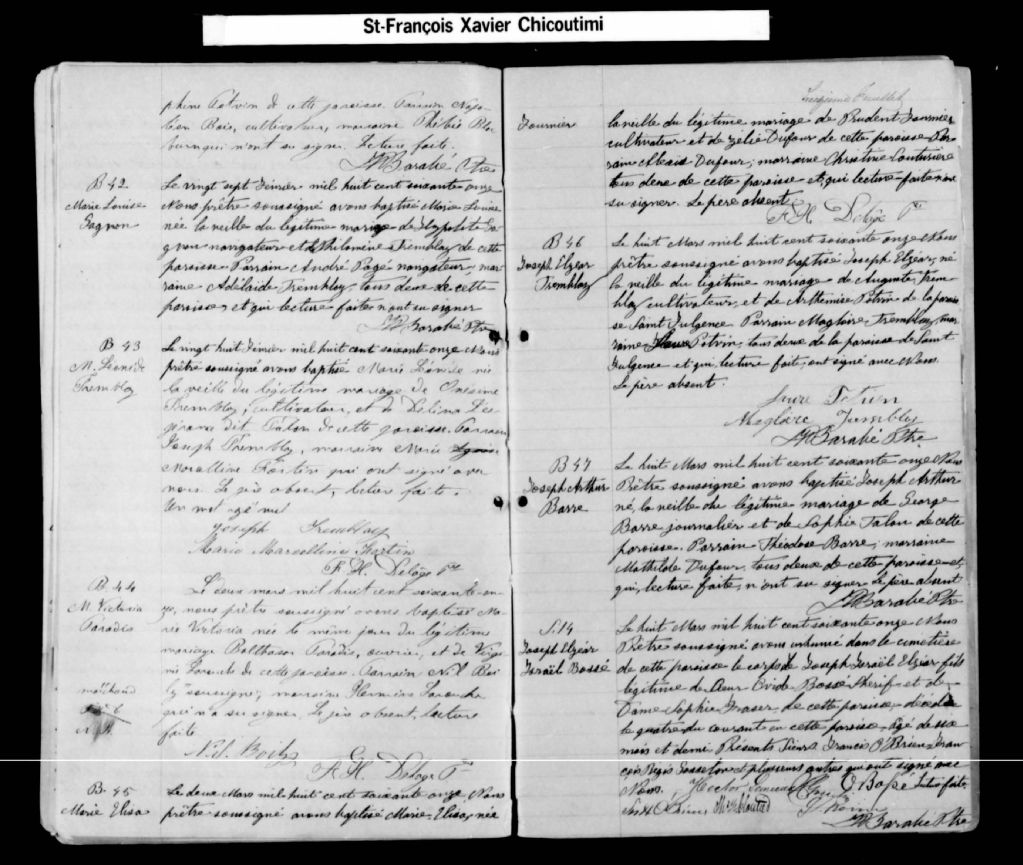 St-François Xavier Chicoutimi
phine Potvin de cette paroisse. Parrain Napo-
léon Bois, cultivateur, marraine Phébée Bla-
burn qui n'ont su signer. Lecture faite.
Barabé Ptre
B 42
Marie Louise
Gagnon
Le vingt sept Février mil huit cent soixante onze
Nous prêtre soussigné avons baptisé Marie Louise
née la veille du légitime mariage de Hypolite Ga-
gnon navigateur et de Philomène Tremblay de cette
paroisse. Parrain André Pagé navigateur, mar-
raine Adelaide Tremblay, tous deux de cette
paroisse et qui lecture faite n'ont su signer
Barabé Ptre
B 43
M. Léonide
Tremblay
Le vingt huit Février mil huit cent soixante onze Nous
prêtre soussigné avons baptisé Marie Léonide née
la veille du légitime mariage de Onésime
Tremblay, cultivateur, et de Délina L'es-
pérance dit Talon de cette paroisse. Parrain
Joseph Tremblay, marraine Marie
Marcelline Fortin qui ont signé avec
nous. Le père absent, lecture faite.
Un mot rayé nul
Joseph Tremblay
Marie Marcelline Fortin
F. H. Delâge Ptre
B. 44
M. Victoria
Paradis
Le deux mars mil huit cent soixante on-
ze, nous prêtre soussigné avons baptisé Ma-
rie Victoria née le même jour du légitime
mariage Balthasar Paradis, ouvrier, et de Virgi-
nie Larouche de cette paroisse. Parrain Nil Boi-
ly soussigné, marraine Larouche
qui n'a su signer. Le père absent, lecture
faite
marchand
Nil. Boily
F. H. Delâge Ptre
B. 45
Marie Elisa
Le deux Mars mil huit cent soixante onze, Nous
prêtre soussigné avons baptisé Marie Elisa, née
Treizième Feuillet
Fournier
la veille du légitime mariage de Prudent Fournier
cultivateur et de Zélie Dufour de cette paroisse Par-
rain Alexis Dufour; marraine Christine Couturière
tous deux de cette paroisse et qui lecture faite n'ont
su signer. Le père absent
F. H. Delâge Ptre
B 46
Joseph Elzéar
Tremblay
Le huit Mars mil huit cent soixante onze Nous
prêtre soussigné avons baptisé Joseph Elzéar, né
la veille du légitime mariage de Auguste Trem-
blay cultivateur, et de Arthémise Potvin de la parois-
se Saint Fulgence Parrain Magloire Tremblay, mar-
raine Laure Potvin, tous deux de la paroisse de Saint
Fulgence et qui, lecture faite, ont signé avec Nous
Le père absent.
Laure Potvin
Magloire Tremblay
Barabé Ptre
B 47
Joseph Arthur
Barre
Le huit Mars mil huit cent soixante onze Nous
Prêtre soussigné avons baptisé Joseph Arthur
né, la veille du légitime mariage de George
Barre journalier et de Sophie Talon de cette
paroisse. Parrain Théodose Barre, marraine
Mathilde Dufour, tous deux de cette paroisse et
qui, lecture faite, n'ont su signer le père absent
Barabé Ptre
S. 14
Joseph Elzéar
Israël Bossé
Le huit Mars mil huit cent soixante onze Nous
Prêtre soussigné avons inhumé dans le cimetière
de cette paroisse le corps de Joseph Israël Elzéar fils
légitime de Sieur Ovide Bossé Shérif et de
Dame Sophie Fraser, de cette paroisse, décédé
le quatre du courant en cette paroisse, âgé de six
mois et demi. Présents Sieurs Francis O'Brien, Fran-
çois Régis Gosselin et plusieurs autres qui ont signé avec
Nous. O Bossé Lecture faite.
Barabé Ptre